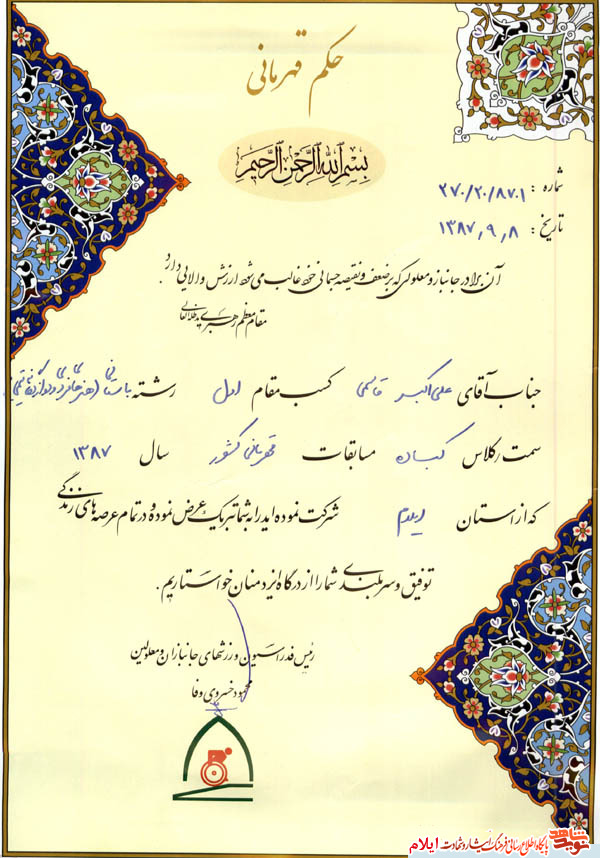 حکم قهرمانی
بسم الله الرحمن الرحیم
شماره : ۲۷۰/۲۰/۸۷۰۱
تاریخ : ۱۳۸۷٫۹٫۸
آن برادر جانباز و معلولی که بر ضعف و نقیصه جسمانی خود غالب می شود ارزش والایی دارد.
مقام معظم رهبری مدظله العالی
جناب آقای علی اکبر قاسمی کسب مقام اول رشته باستانی
سمت / کلاس کباده مسابقات قهرمانی کشور سال ۱۳۸۷
که از استان ایلام شرکت نموده اید را به شما تبریک عرض نموده و در تمام عرصه های زندگی
توفیق و سربلندی شما را از درگاه ایزد منان خواستاریم.
رئیس فدراسیون ورزشهای جانبازان و معلولین
محمود خسروی وفا
نوید شاهد پایگاه اطلاع رسانی فرهنگ ایثار و شهادت ایلام